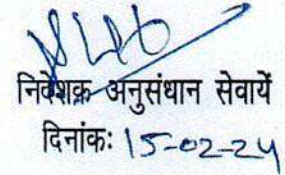 निदेशक अनुसंधान सेवायें
दिनांकः 15-02-24